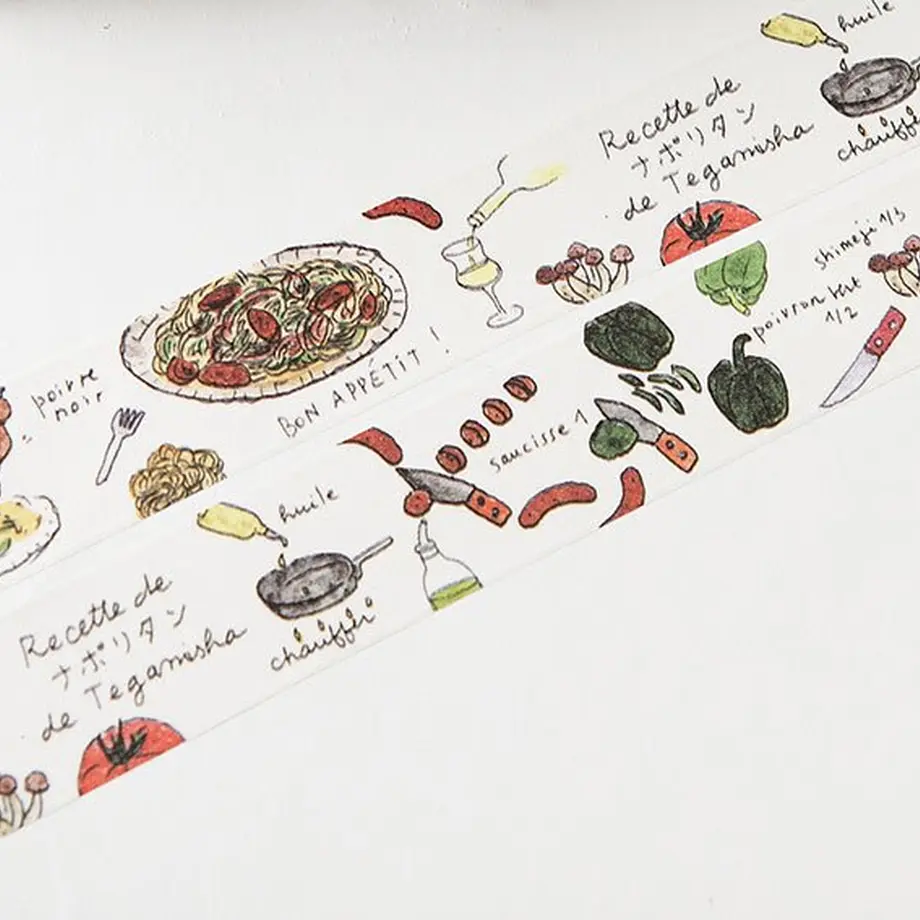 huile
chauffer
Recette de
ナポリタン
de Tegamisha
BON APPÉTIT !
poivre
noir
shimeji 1/3
poivron vert
1/2
saucisse 1
huile
chauffer
Recette de
ナポリタン
de Tegamisha